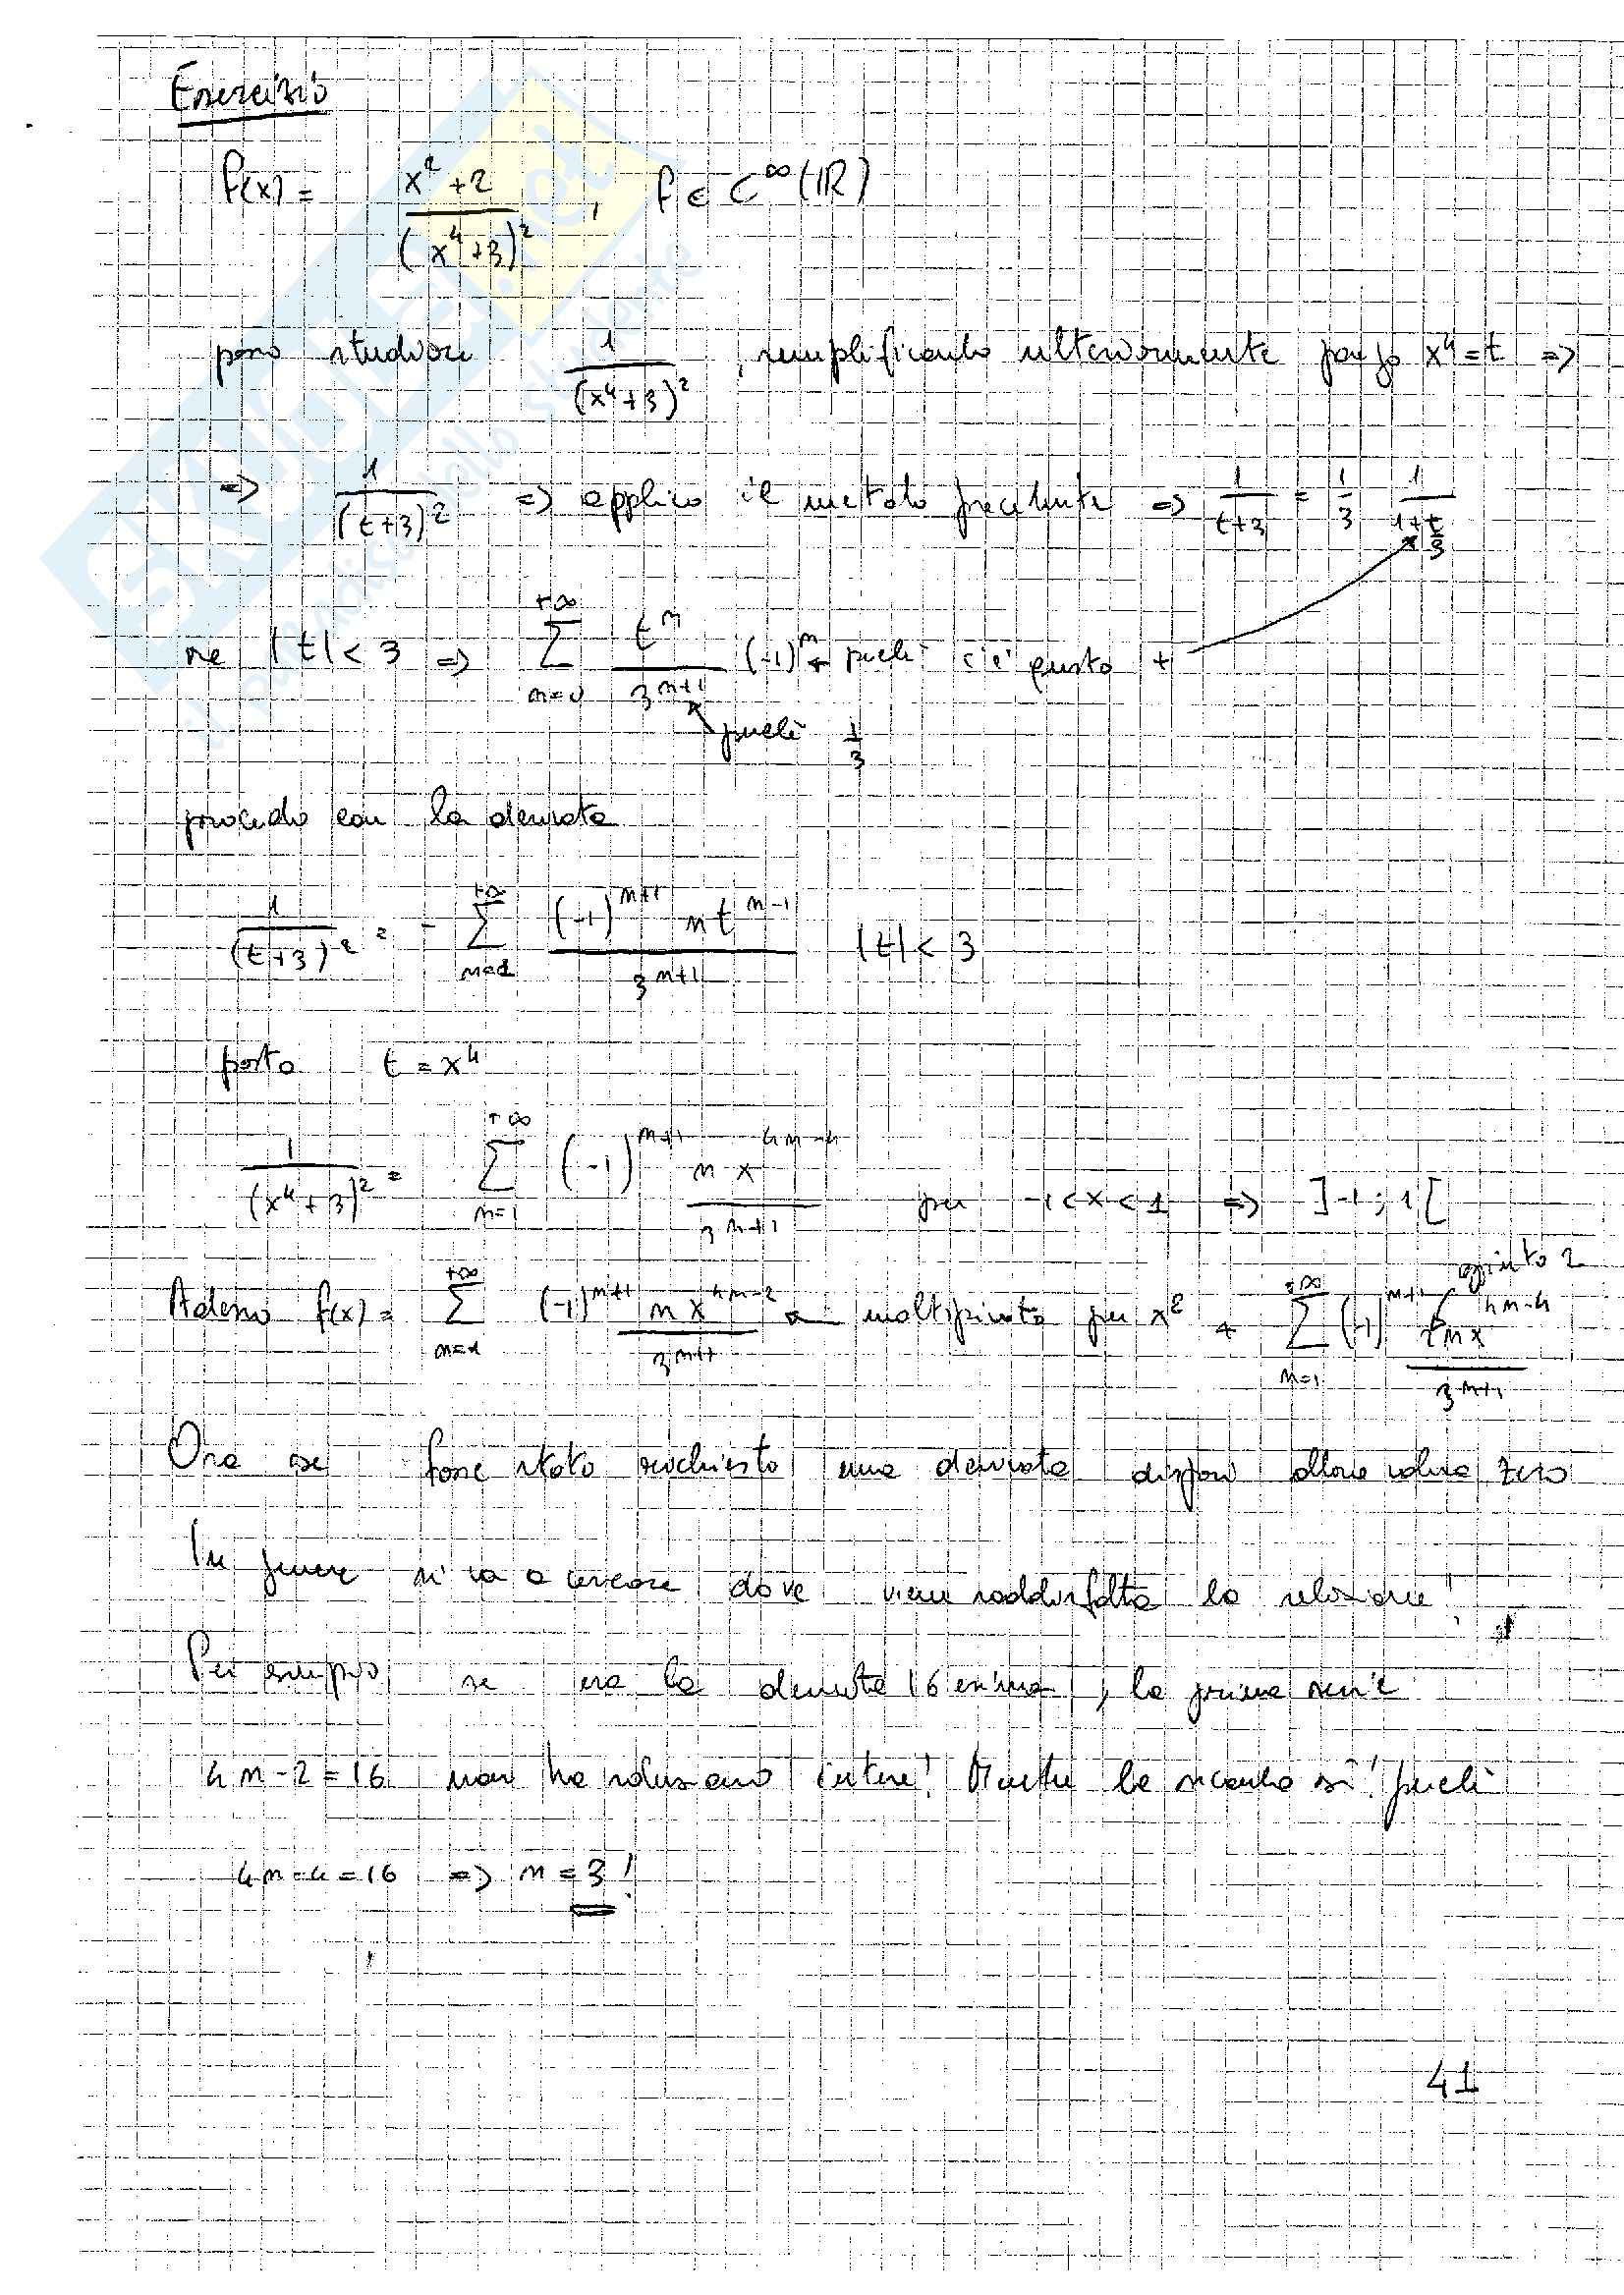 Esercizio
f(x) = (x² + 2) / (x⁴ + 3)² , f ∈ C^∞(ℝ)
posso studiare 1 / (x⁴ + 3)² , semplificando ulteriormente pongo x⁴ = t ⇒
⇒ 1 / (t + 3)² ⇒ applico il metodo precedente ⇒ 1 / (t + 3) = 1/3 · 1 / (1 + t/3)
se |t| < 3 ⇒ Σ_{n=0}^{+∞} t^n / 3^{n+1} (-1)^n ← perché c'è questo +
perché 1/3
procedo con la derivata
1 / (t + 3)² = - Σ_{n=1}^{+∞} (-1)^{n+1} n t^{n-1} / 3^{n+1} |t| < 3
posto t = x⁴
1 / (x⁴ + 3)² = Σ_{n=1}^{+∞} (-1)^{n+1} n x^{4n-4} / 3^{n+1} per -1 < x < 1 ⇒ ]-1 ; 1[
aggiunto 2
Adesso f(x) = Σ_{n=1}^{+∞} (-1)^{n+1} n x^{4n-2} / 3^{n+1} ← moltiplicato per x² + Σ_{n=1}^{+∞} (-1)^{n+1} 2n x^{4n-4} / 3^{n+1}
Ora se fosse stato richiesto una derivata dispari allora valeva zero
In genere si va a cercare dove viene soddisfatta la relazione!
Per esempio se era la derivata 16esima, la prima serie
4n-2 = 16 non ha soluzioni intere! Mentre la seconda sì! perché
4n-4 = 16 ⇒ n = 3!
41
SKUOLA.net
il paradiso dello studente